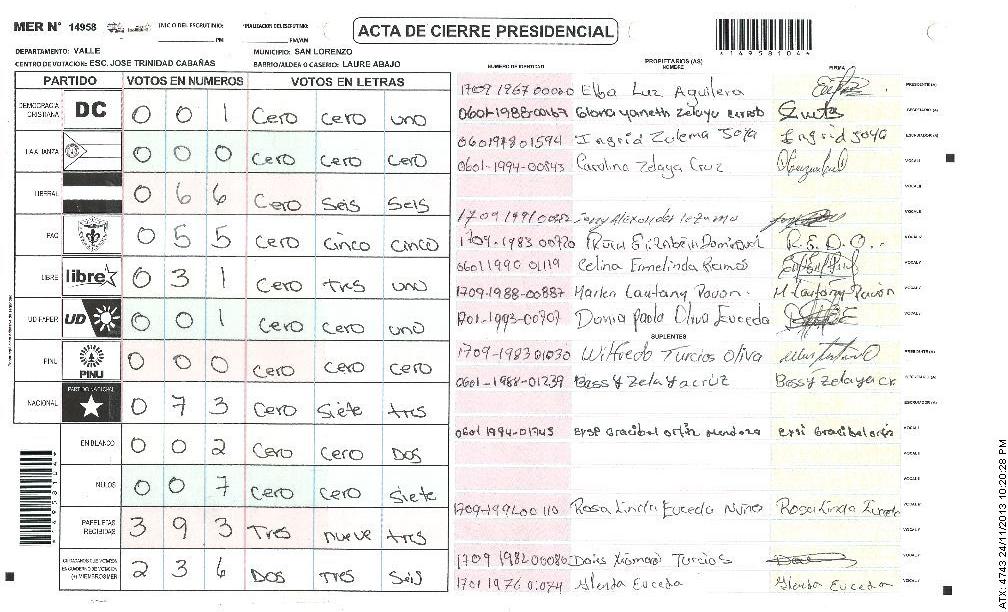 MER N° 14958 INICIO DEL ESCRUTINIO: PM FINALIZACION DEL ESCRUTINIO: PM/AM
ACTA DE CIERRE PRESIDENCIAL
DEPARTAMENTO: VALLE MUNICIPIO: SAN LORENZO
CENTRO DE VOTACION: ESC. JOSE TRINIDAD CABAÑAS BARRIO/ALDEA O CASERIO: LAURE ABAJO
PARTIDO VOTOS EN NUMEROS VOTOS EN LETRAS
DEMOCRACIA CRISTIANA DC 0 0 1 Cero cero uno
LA ALIANZA 0 0 0 cero cero cero
LIBERAL 0 6 6 Cero Seis Seis
PAC 0 5 5 cero cinco cinco
LIBRE libre 0 3 1 Cero tres uno
UD-FAPER UD 0 0 1 cero cero uno
PINU PINU 0 0 0 cero cero cero
NACIONAL PARTIDO NACIONAL 0 7 3 cero Siete tres
EN BLANCO 0 0 2 cero cero DOS
NULOS 0 0 7 cero cero Siete
PAPELETAS RECIBIDAS 3 9 3 Tres nueve tres
2 3 6 DOS TRES Seis
NUMERO DE IDENTIDAD PROPIETARIOS (AS) NOMBRE FIRMA
Elba Luz Aguilera PRESIDENTE (A)
SECRETARIO (A)
0601197801594 Ingrid Zulema Soya Ingrid Soya ESCRUTADOR (A)
0601-1994-00843 Carolina Zelaya Cruz VOCAL I
VOCAL II
VOCAL
1709-1983 00720 R.E.D.O. VOCAL
0601 1990 01119 Celina Ermelinda Ramos VOCAL
1709-1988-00887 Marlen Lautany Pavon. M Lautany Pavon VOCAL
1701-1993-00707 Dania Paola Oliva Euceda VOCAL
SUPLENTES
1709-1983 01030 Wilfredo Turcios Oliva PRESIDENTE (A)
0601-1988-01239 Bessy Zelaya cruz Bessy Zelaya cr SECRETARIO (A)
ESCRUTADOR (A)
0601 1994-01745 Ersi Gracibel ortiz Mendoza Ersi Gracibel ortiz VOCAL I
VOCAL II
VOCAL
Rosa Linda Euceda Nuño Rosa Linda Euceda VOCAL
VOCAL
1709 1982 00080 Turcios VOCAL
1701 1976 01074 Glenda Euceda Glenda Euceda VOCAL
*149581044*
ATX: 4743 24/11/2013 10:20:28 PM